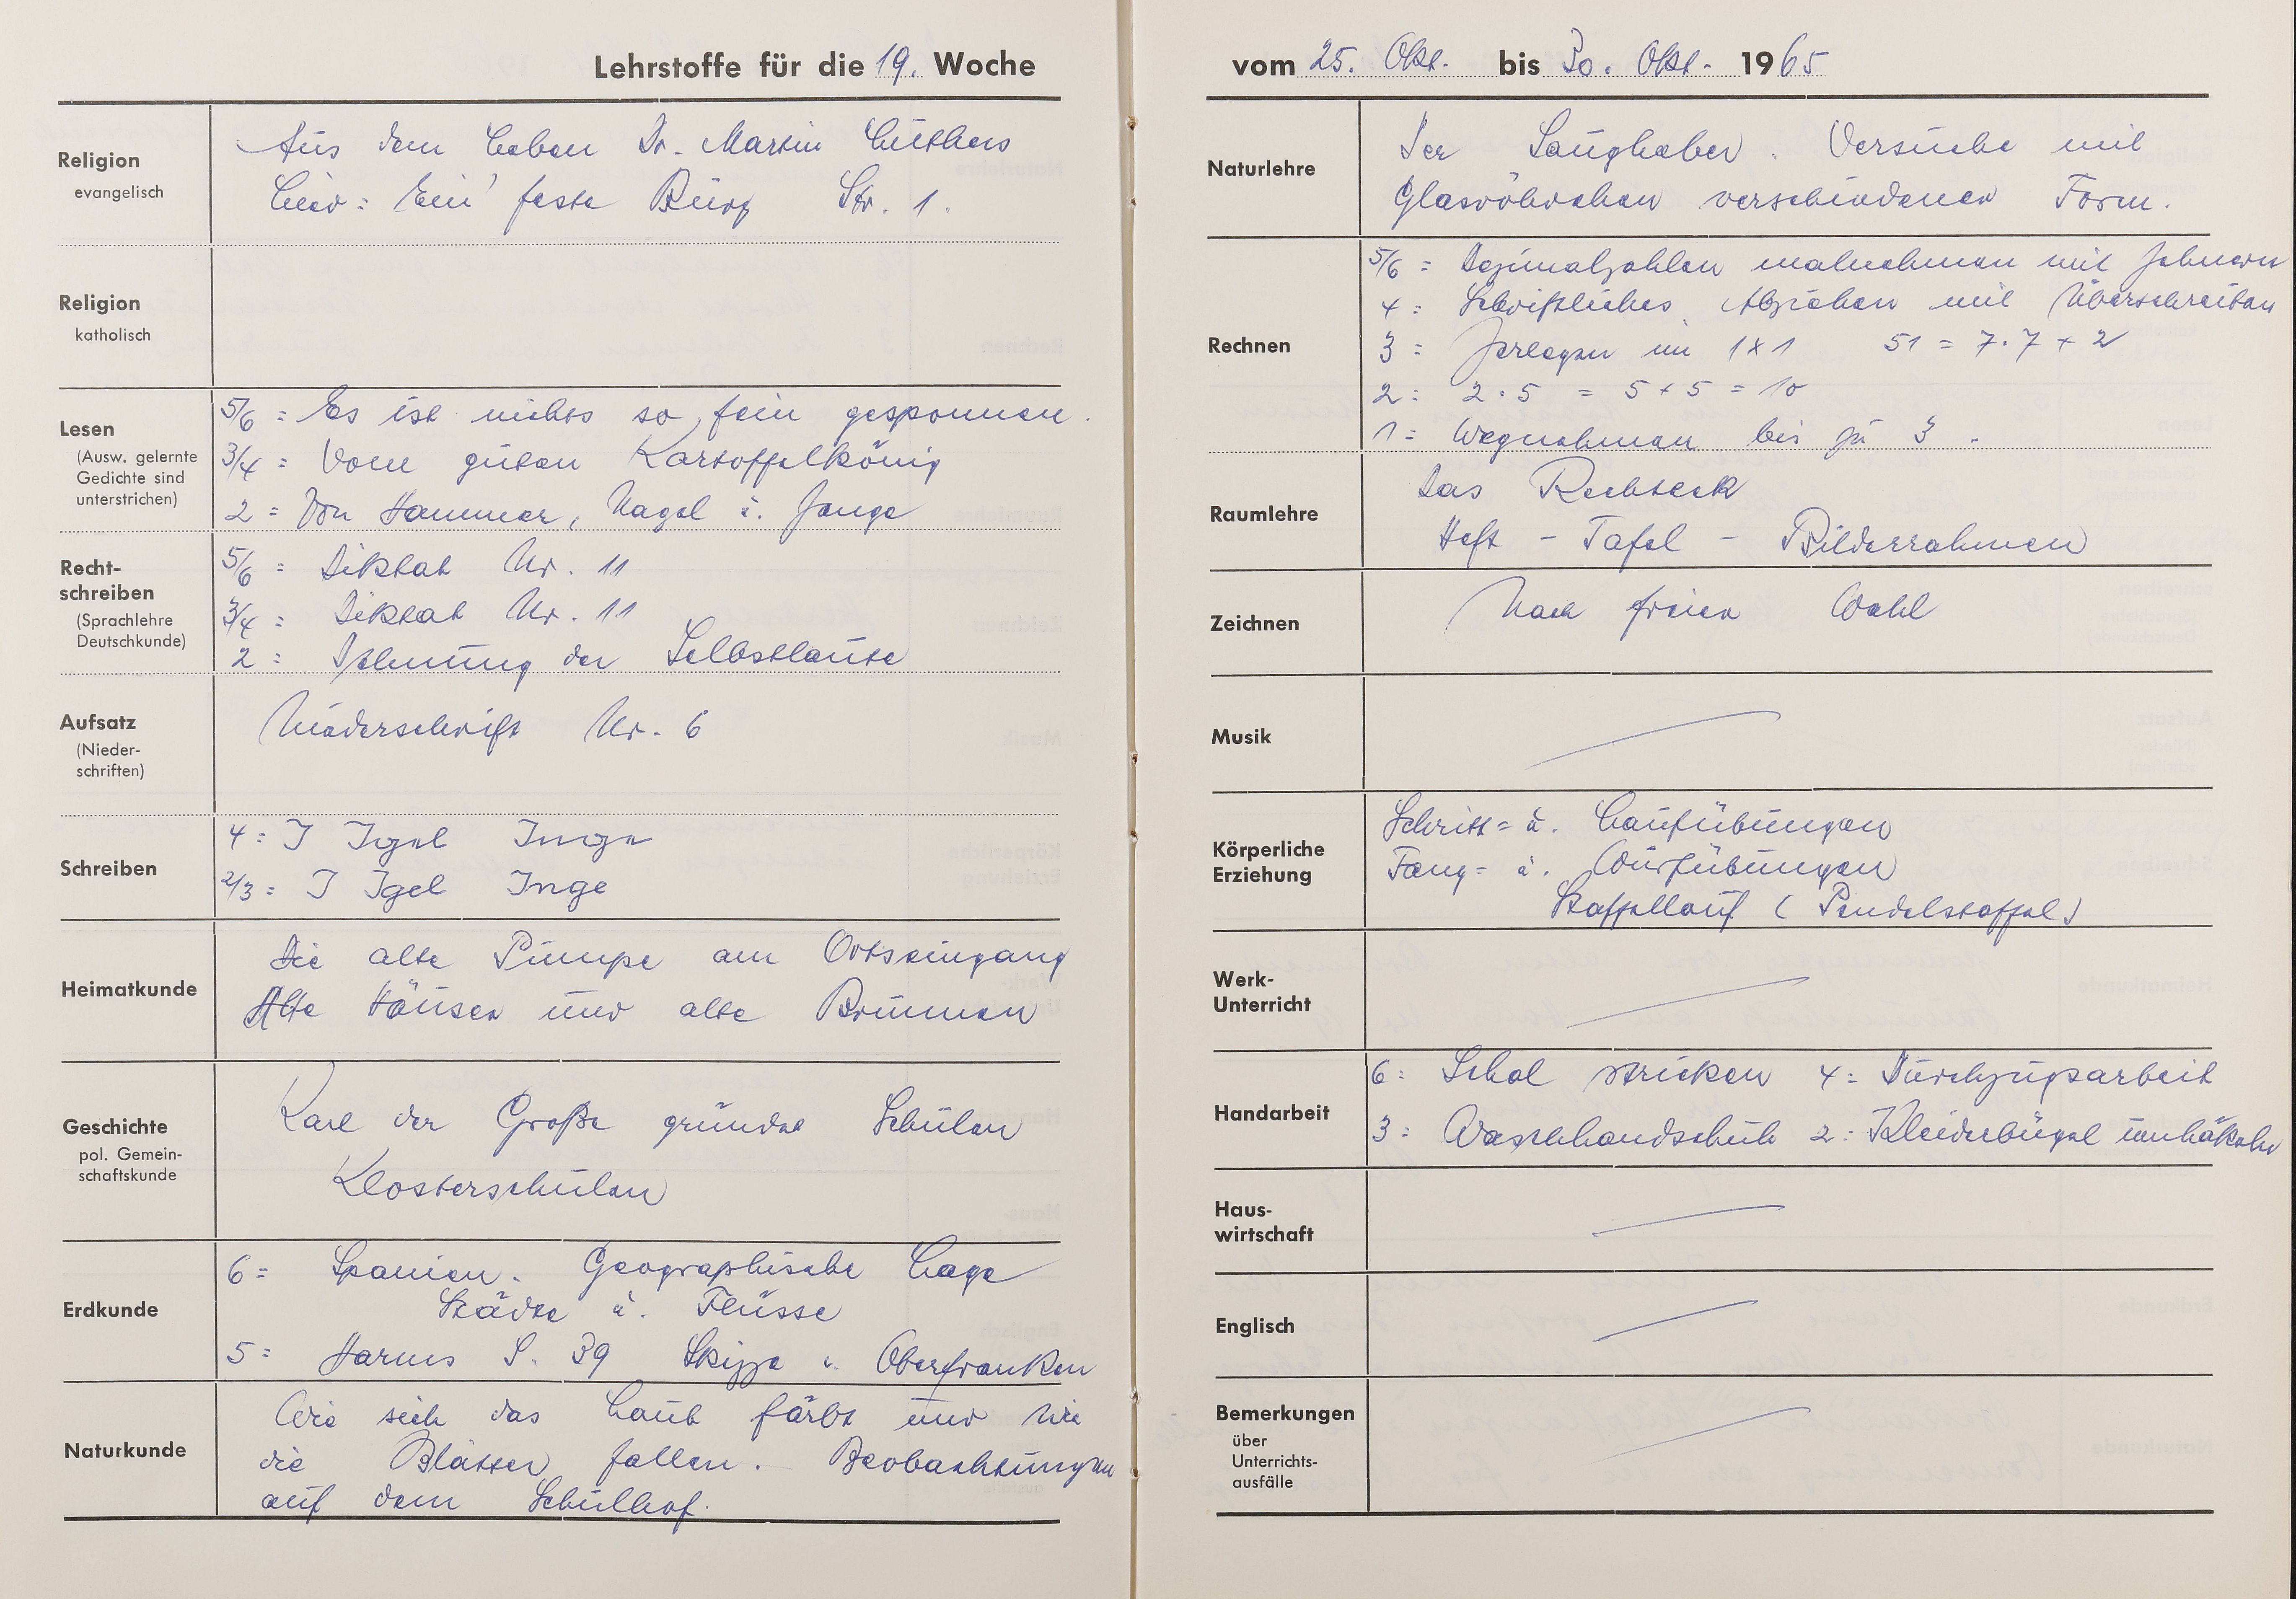 Lehrstoffe für die 19. Woche
Religion
evangelisch
Aus dem Leben Dr. Martin Luthers
Lied: Ein' feste Burg Str. 1.
Religion
katholisch
Lesen
(Ausw. gelernte
Gedichte sind
unterstrichen)
5/6 = Es ist nichts so fein gesponnen.
3/4 = Vom guten Kartoffelkönig
2 = Von Hammer, Nagel u. Zange
Recht-
schreiben
(Sprachlehre
Deutschkunde)
5/6 = Diktat Nr. 11
3/4 = Diktat Nr. 11
2 = Dehnung der Selbstlaute
Aufsatz
(Nieder-
schriften)
Niederschrift Nr. 6
Schreiben
4 = I Igel Inge
2/3 = I Igel Inge
Heimatkunde
Die alte Pumpe am Ortseingang
Alte Häuser und alte Brunnen
Geschichte
pol. Gemein-
schaftskunde
Karl der Große gründet Schulen
Klosterschulen
Erdkunde
6 = Spanien. Geographische Lage
Städte u. Flüsse
5 = Harms S. 39 Skizze v. Oberfranken
Naturkunde
Wie sich das Laub färbt und wie
die Blätter fallen. Beobachtungen
auf dem Schulhof.
vom 25. Okt. bis 30. Okt. 1965
Naturlehre
Der Saugheber. Versuche mit
Glasröhrchen verschiedener Form.
Rechnen
5/6 = Dezimalzahlen malnehmen mit Zehnern
4 = Schriftliches Abziehen mit Überschreiten
3 = Zerlegen im 1x1 51 = 7·7 + 2
2 = 2·5 = 5+5 = 10
1 = Wegnehmen bis zu 3.
Raumlehre
Das Rechteck
Heft - Tafel - Bilderrahmen
Zeichnen
Nach freier Wahl
Musik
Körperliche
Erziehung
Schritt= u. Laufübungen
Fang= u. Wurfübungen
Staffellauf (Pendelstaffel)
Werk-
Unterricht
Handarbeit
6 = Schal stricken 4 = Durchzugsarbeit
3 = Waschhandschuh 2 = Kleiderbügel umhäkeln
Haus-
wirtschaft
Englisch
Bemerkungen
über
Unterrichts-
ausfälle